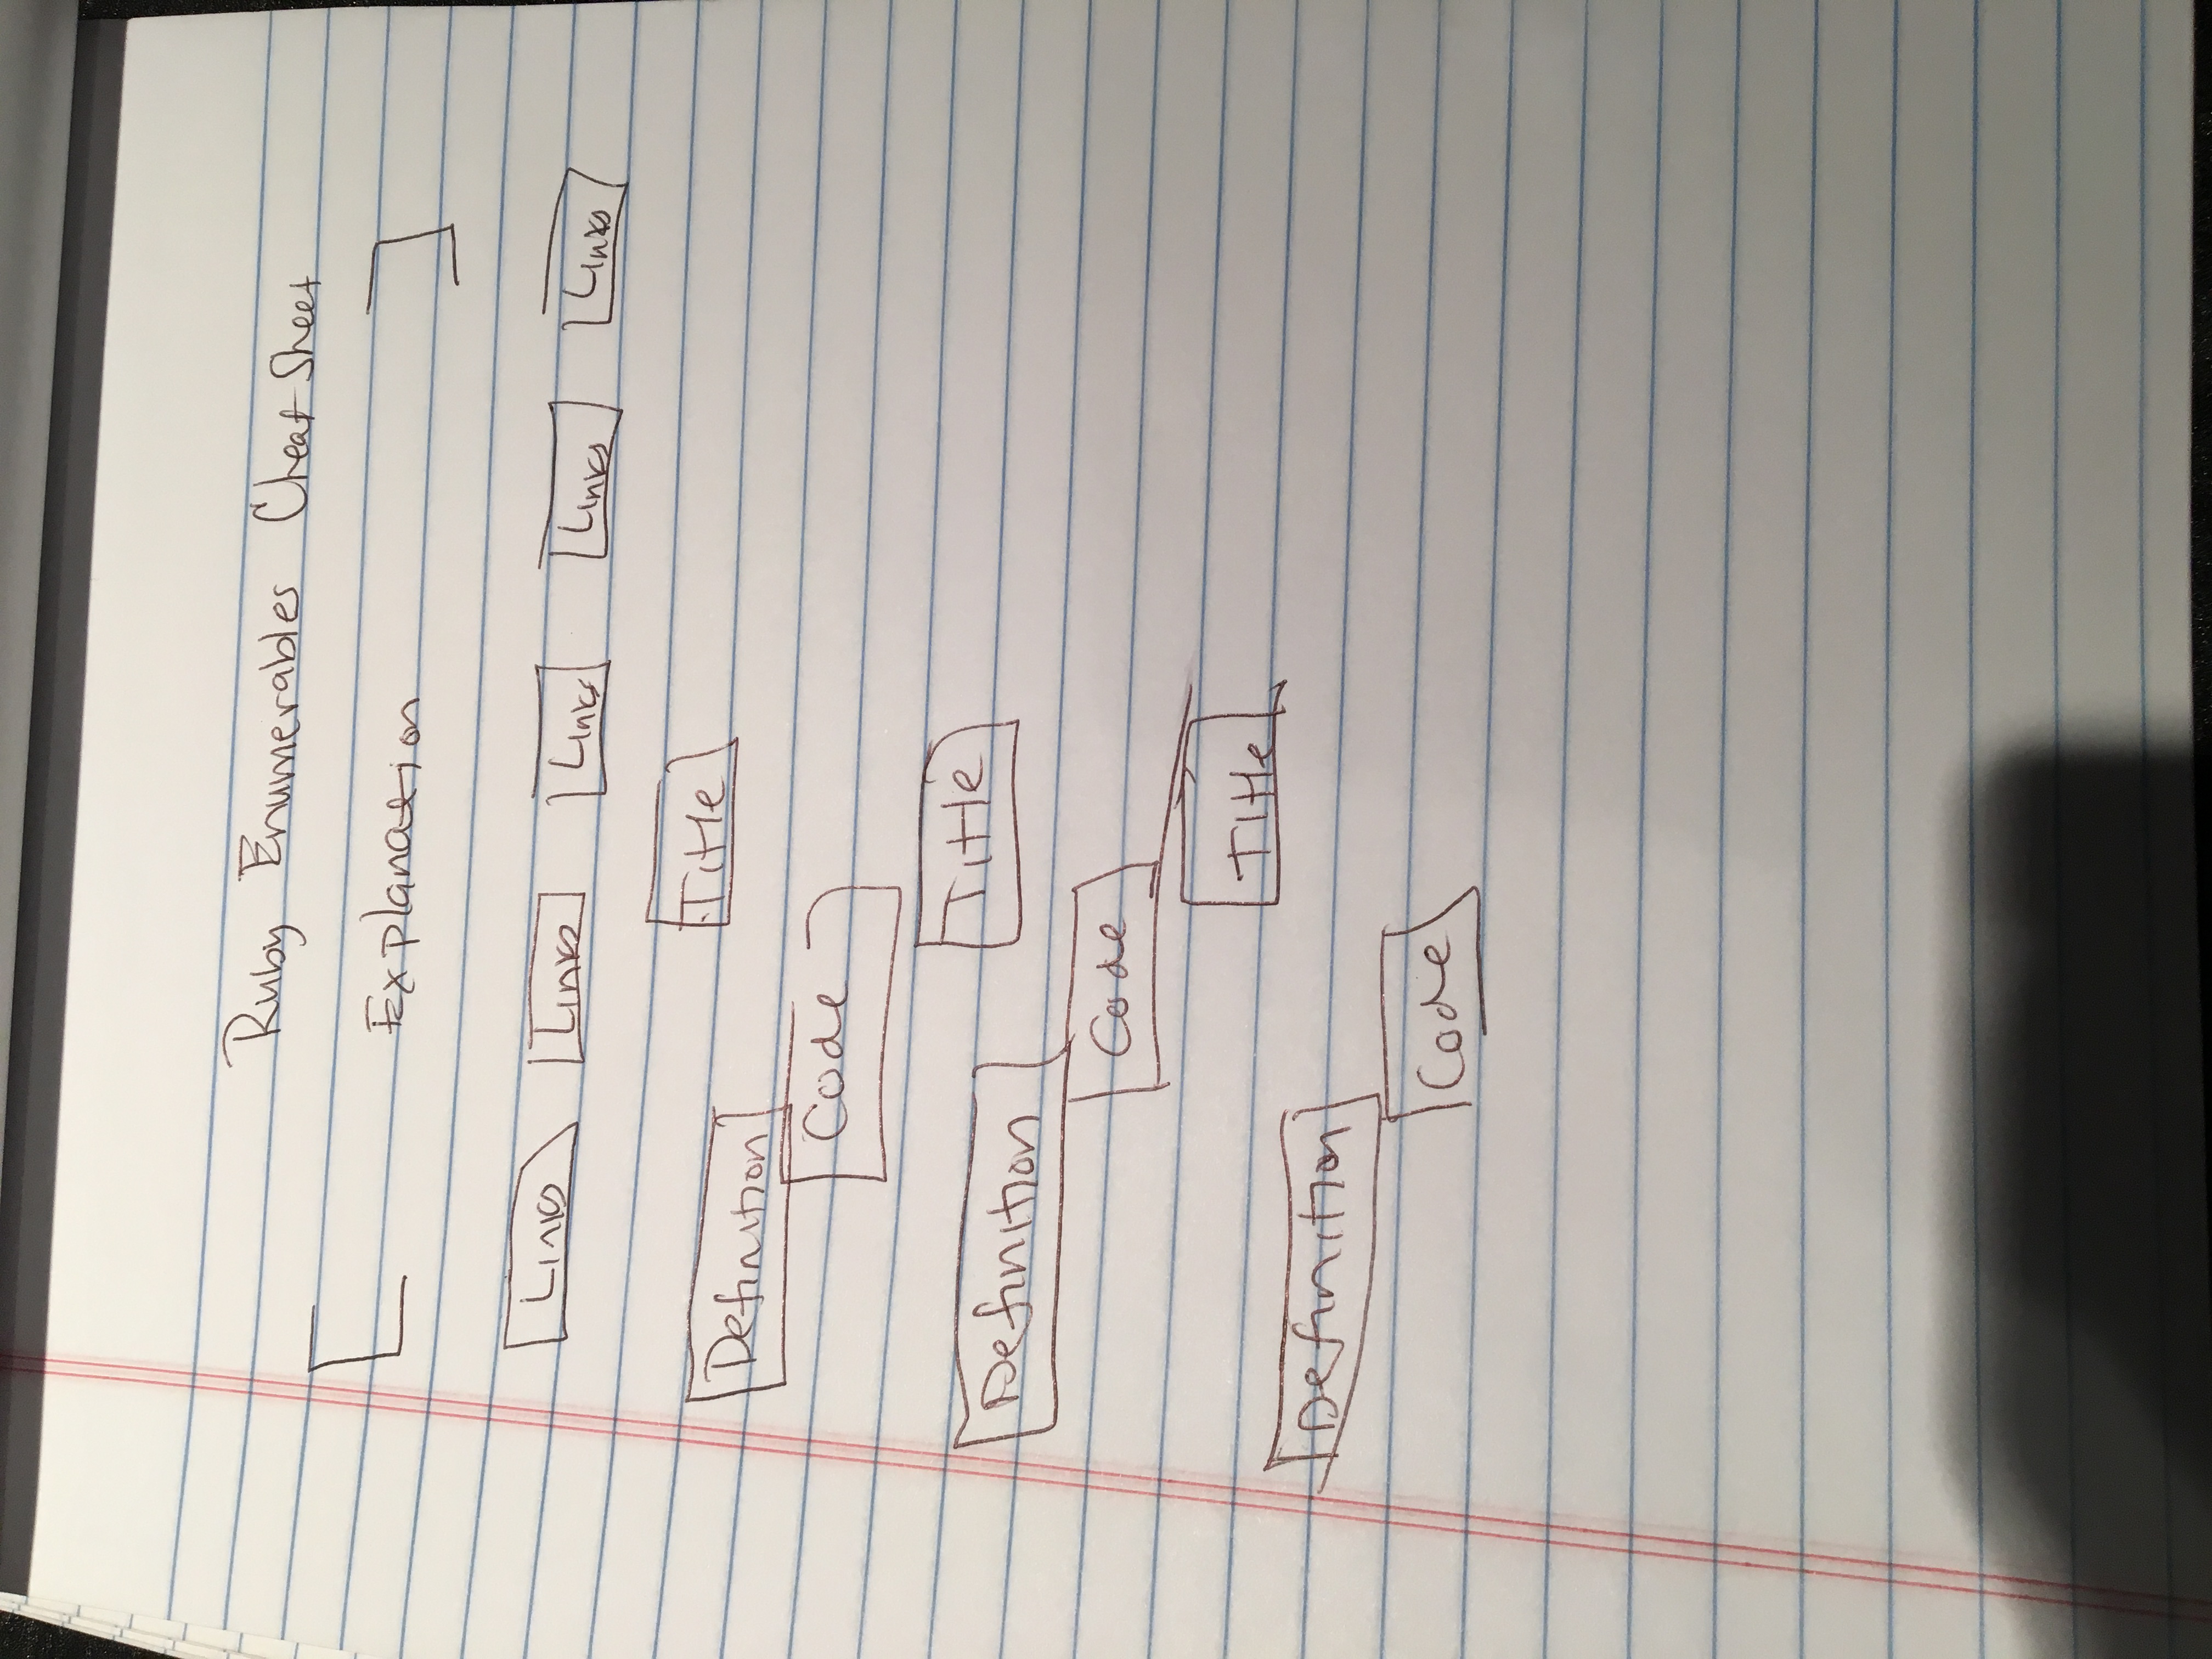 Ruby Enumerables Cheat Sheet
Explanation
Links Links Links Links Links
Title
Definition
Code
Title
Definition
Code
Title
Definition
Code